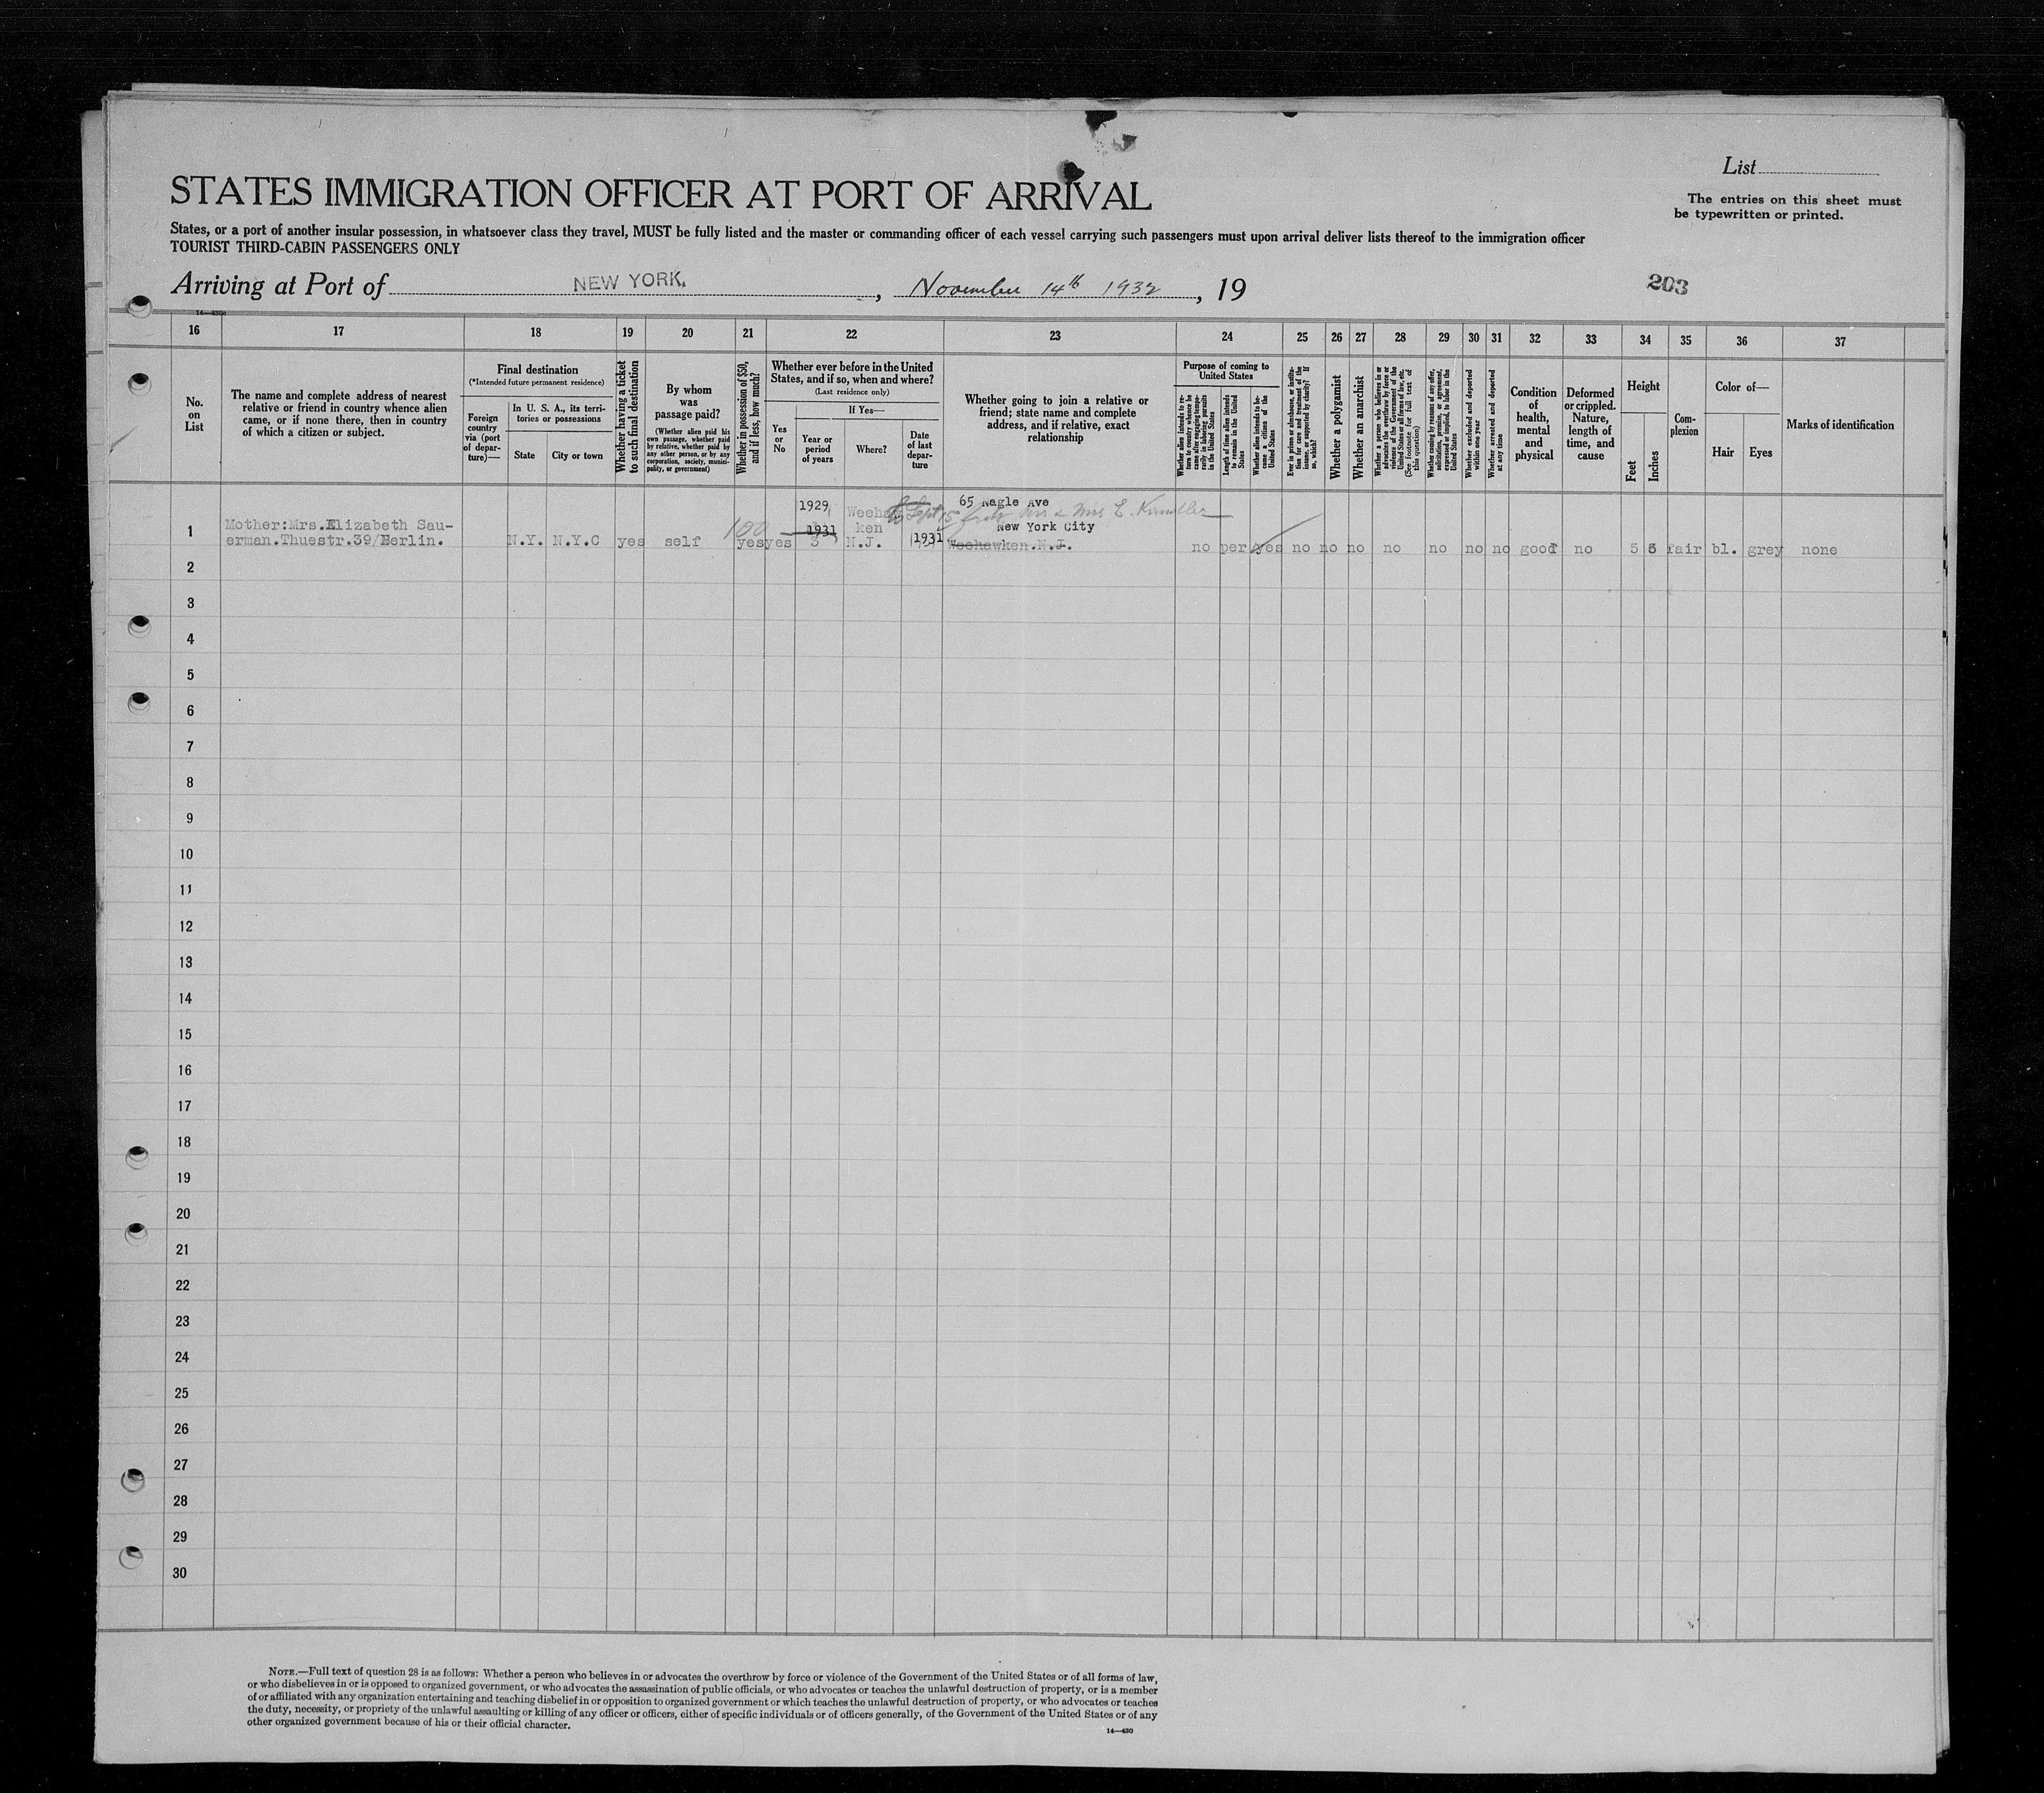 List
STATES IMMIGRATION OFFICER AT PORT OF ARRIVAL
The entries on this sheet must
be typewritten or printed.
States, or a port of another insular possession, in whatsoever class they travel, MUST be fully listed and the master or commanding officer of each vessel carrying such passengers must upon arrival deliver lists thereof to the immigration officer
TOURIST THIRD-CABIN PASSENGERS ONLY
Arriving at Port of NEW YORK. , November 14th 1932 , 19
203
14—430
16 17 18 19 20 21 22 23 24 25 26 27 28 29 30 31 32 33 34 35 36 37
No.
on
List
The name and complete address of nearest
relative or friend in country whence alien
came, or if none there, then in country
of which a citizen or subject.
Final destination
(*Intended future permanent residence)
Foreign
country
via (port
of depar-
ture)—
In U. S. A., its terri-
tories or possessions
State
City or town
Whether having a ticket
to such final destination
By whom
was
passage paid?
(Whether alien paid his
own passage, whether paid
by relative, whether paid by
any other person, or by any
corporation, society, munici-
pality, or government)
Whether in possession of $50,
and if less, how much?
Whether ever before in the United
States, and if so, when and where?
(Last residence only)
Yes
or
No
If Yes—
Year or
period
of years
Where?
Date
of last
depar-
ture
Whether going to join a relative or
friend; state name and complete
address, and if relative, exact
relationship
Purpose of coming to
United States
Whether alien intends to re-
turn to country whence he
came after engaging tempo-
rarily in laboring pursuits
in the United States
Length of time alien intends
to remain in the United
States
Whether alien intends to be-
come a citizen of the
United States
Ever in prison or almshouse, or institu-
tion for care and treatment of the
insane, or supported by charity? If
so, which?
Whether a polygamist
Whether an anarchist
Whether a person who believes in or
advocates the overthrow by force or
violence of the Government of the
United States or all forms of law, etc.
(See footnote for full text of
this question)
Whether coming by reasons of any offer,
solicitation, promise, or agreement,
expressed or implied, to labor in the
United States
Whether excluded and deported
within one year
Whether arrested and deported
at any time
Condition
of
health,
mental
and
physical
Deformed
or crippled.
Nature,
length of
time, and
cause
Height
Feet
Inches
Com-
plexion
Color of—
Hair
Eyes
Marks of identification
1929 Weehaw 65 Nagle Ave Mr & Mrs E.
1 Mother:Mrs.Elizabeth Sau- 100 1931 ken Sept 15 New York City
erman.Thuestr.39/Berlin. N.Y. N.Y.C yes self yes yes 3 N.J. 1931 Weehawken.N.J. no per yes no no no no no no no good no 5 6 fair bl. grey none
2
3
4
5
6
7
8
9
10
11
12
13
14
15
16
17
18
19
20
21
22
23
24
25
26
27
28
29
30
NOTE.—Full text of question 28 is as follows: Whether a person who believes in or advocates the overthrow by force or violence of the Government of the United States or of all forms of law,
or who disbelieves in or is opposed to organized government, or who advocates the assassination of public officials, or who advocates or teaches the unlawful destruction of property, or is a member
of or affiliated with any organization entertaining and teaching disbelief in or opposition to organized government or which teaches the unlawful destruction of property, or who advocates or teaches
the duty, necessity, or propriety of the unlawful assaulting or killing of any officer or officers, either of specific individuals or of officers generally, of the Government of the United States or of any
other organized government because of his or their official character.
14—430